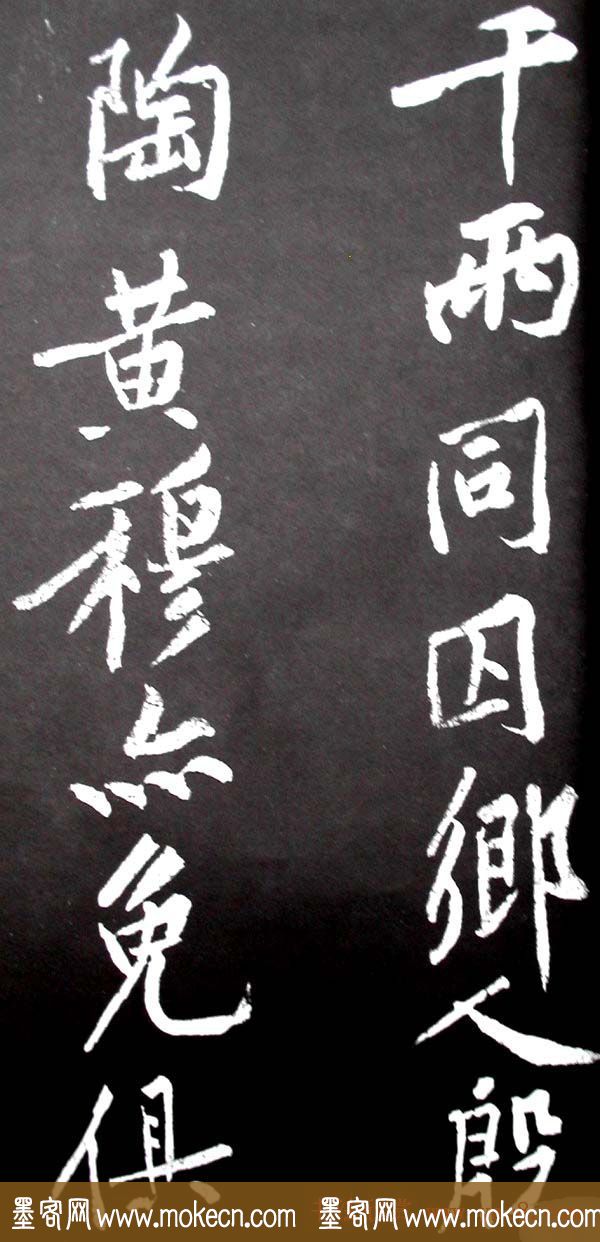 千兩同囚鄉人殷
陶黄穆亦免俱
墨客网 www.mokecn.com 墨客网 www.mokecn.com